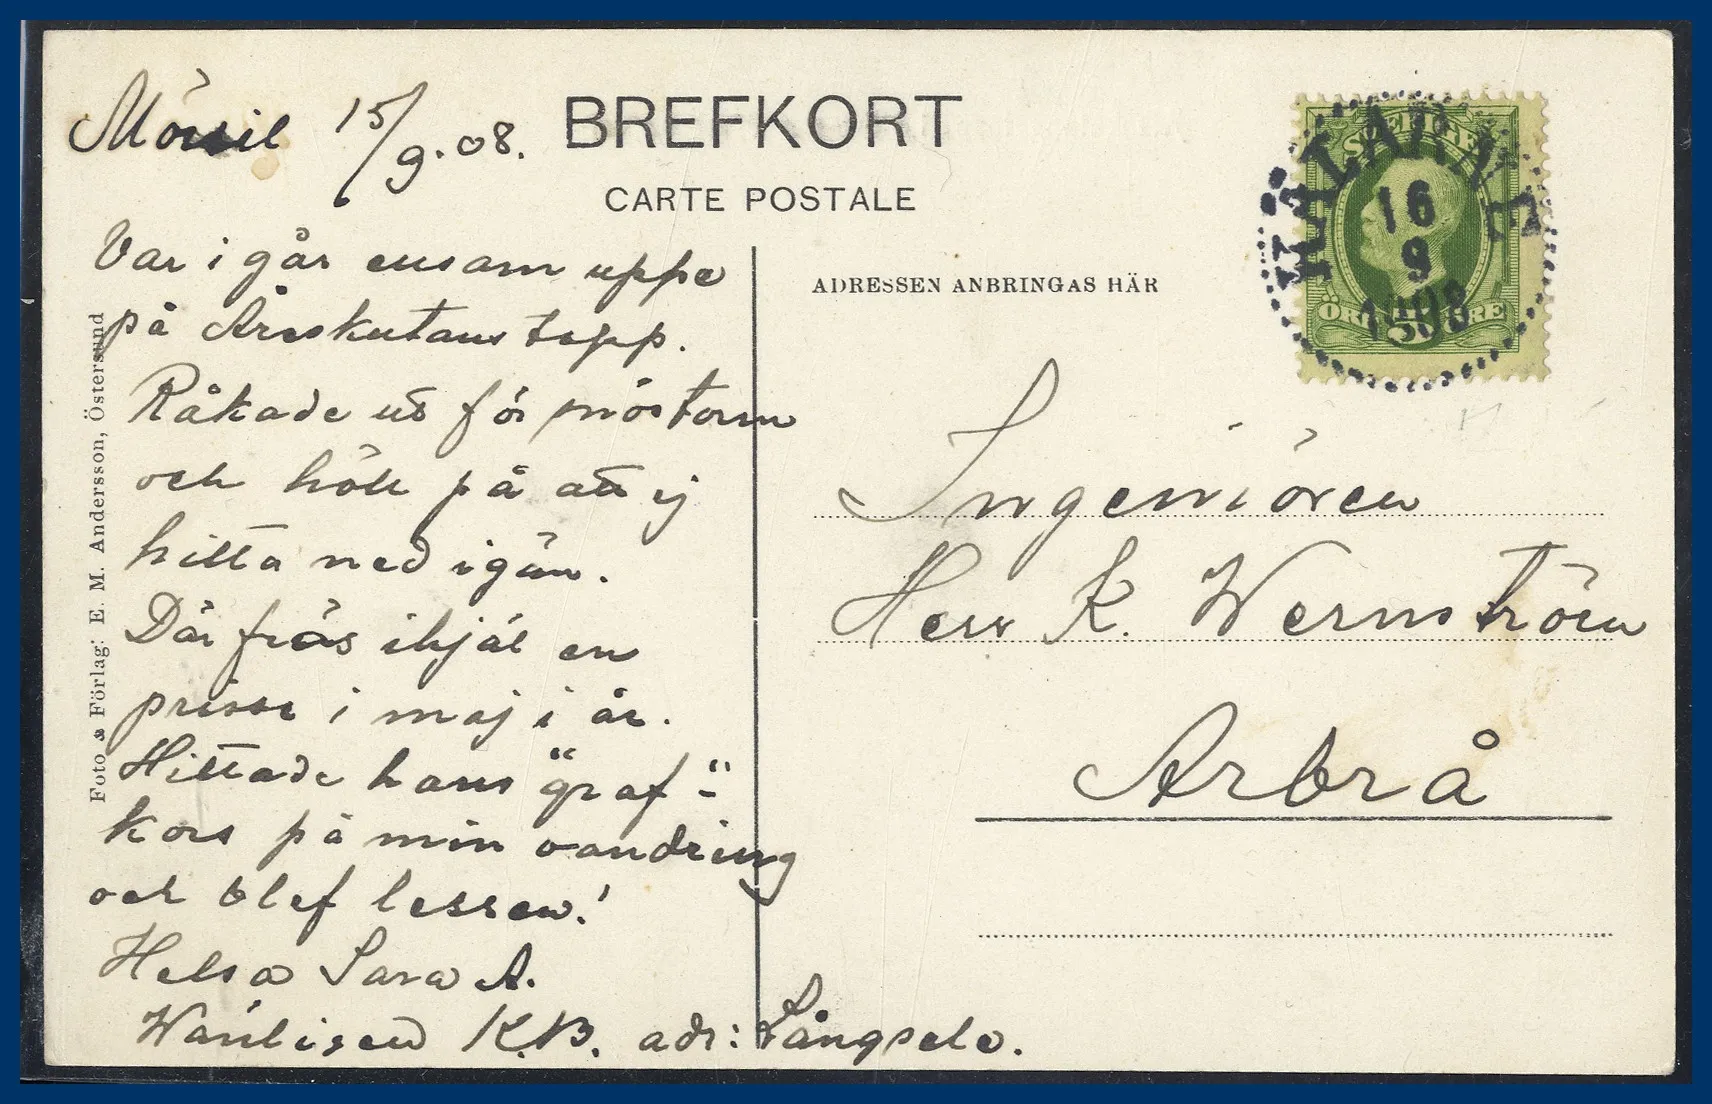 Mörsil 15/9.08.
BREFKORT
CARTE POSTALE
Var i går ensam uppe
på Åreskutans topp.
Råkade ut för snöstorm
och höll på att ej
hitta ned igän.
Där frös ihjäl en
prisse i maj i år.
Hittade hans "graf"-
kors på min vandring
och blef lessen!
Helsa Sara A.
Vänligen K.B. adr: Långsele.
Foto & Förlag: E. M. Andersson, Östersund
ADRESSEN ANBRINGAS HÄR
Ingeniören
Herr K. Wernström
Arbrå
SVERIGE
ÖRE 5 ÖRE
KÄLARNE
16
9
1908